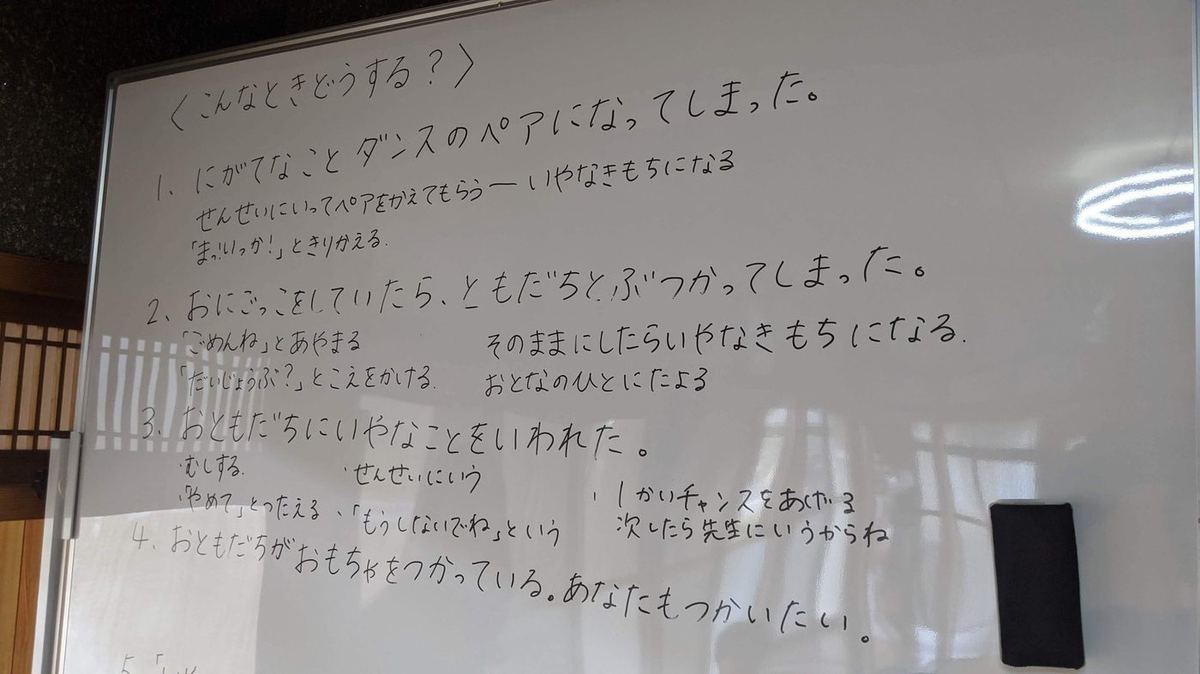 〈こんなときどうする？〉
1. にがてなことダンスのペアになってしまった。
せんせいにいってペアをかえてもらう― いやなきもちになる
「まっ!いっか!」ときりかえる.
2. おにごっこをしていたら、ともだちとぶつかってしまった。
「ごめんね」とあやまる そのままにしたらいやなきもちになる.
「だいじょうぶ?」とこえをかける. おとなのひとにたよる
3. おともだちにいやなことをいわれた。
・むしする. ・せんせいにいう
・「やめて」とつたえる ・「もうしないでね」という ・1かいチャンスをあげる
次したら先生にいうからね
4. おともだちがおもちゃをつかっている。あなたもつかいたい。
5.